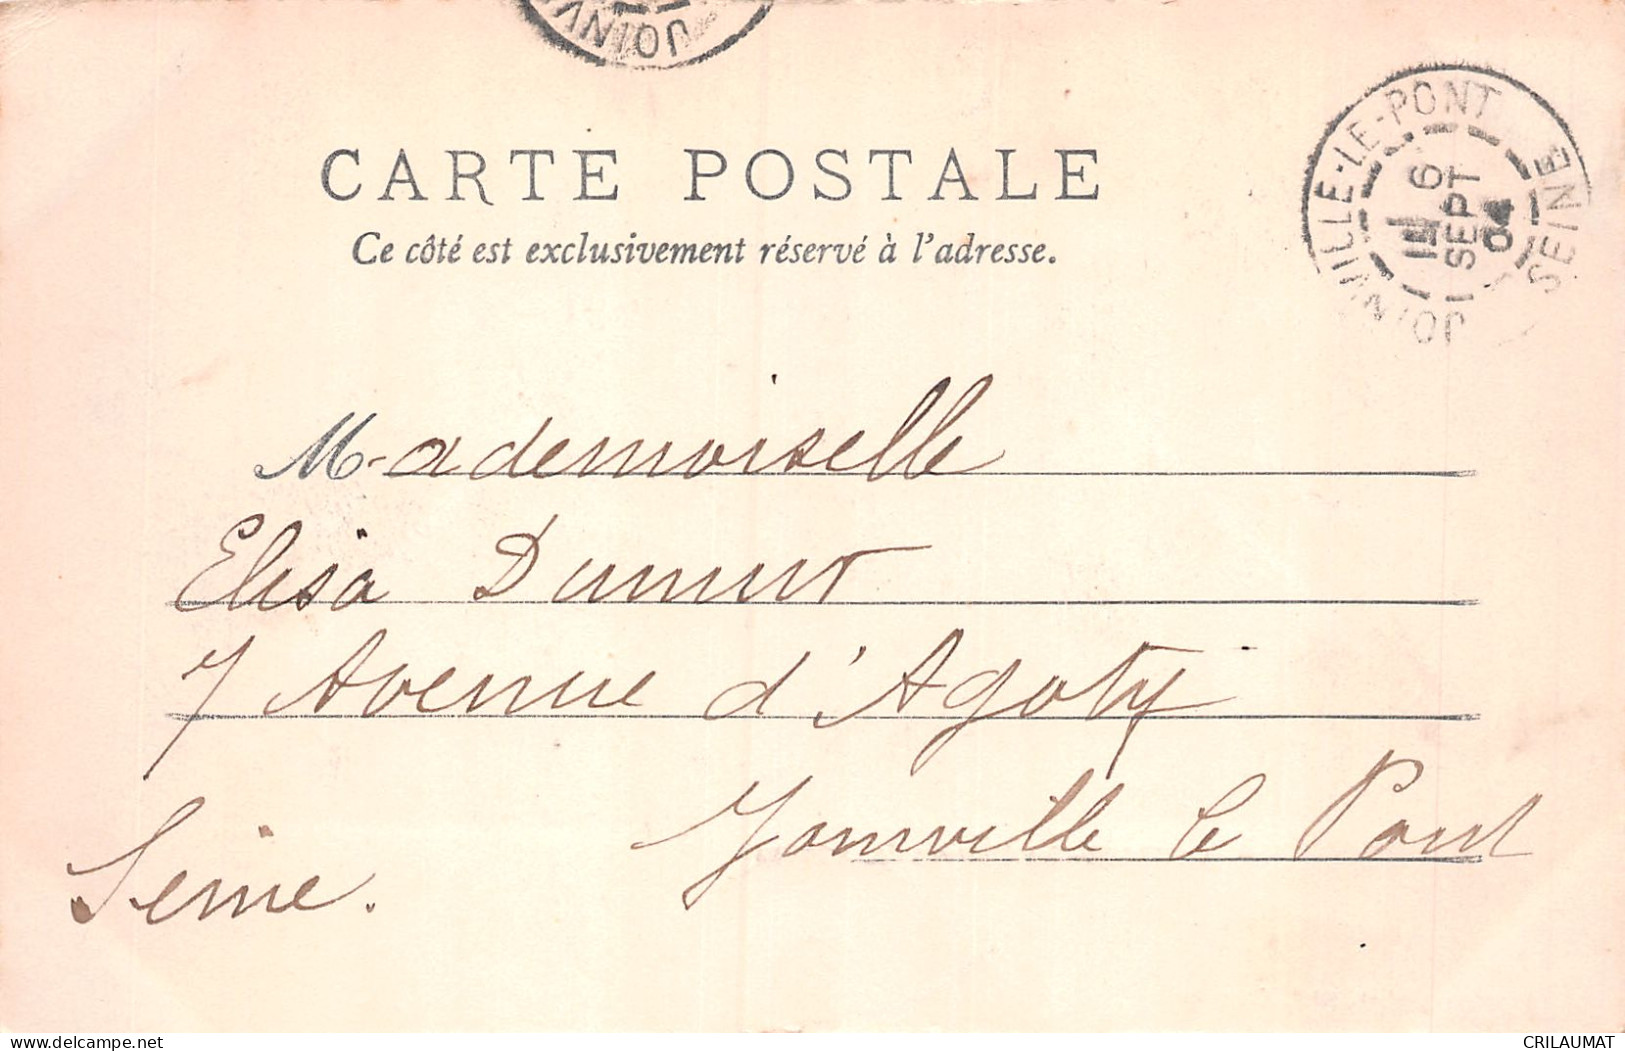 JOINV
CARTE POSTALE
Ce côté est exclusivement réservé à l'adresse.
JOINVILLE-LE-PONT
6
SEPT
04
SEINE
Mademoiselle
Elisa Dumur
7 Avenue d'Agoty
Joinville le Pont
Seine.
delcampe.net
CRILAUMAT